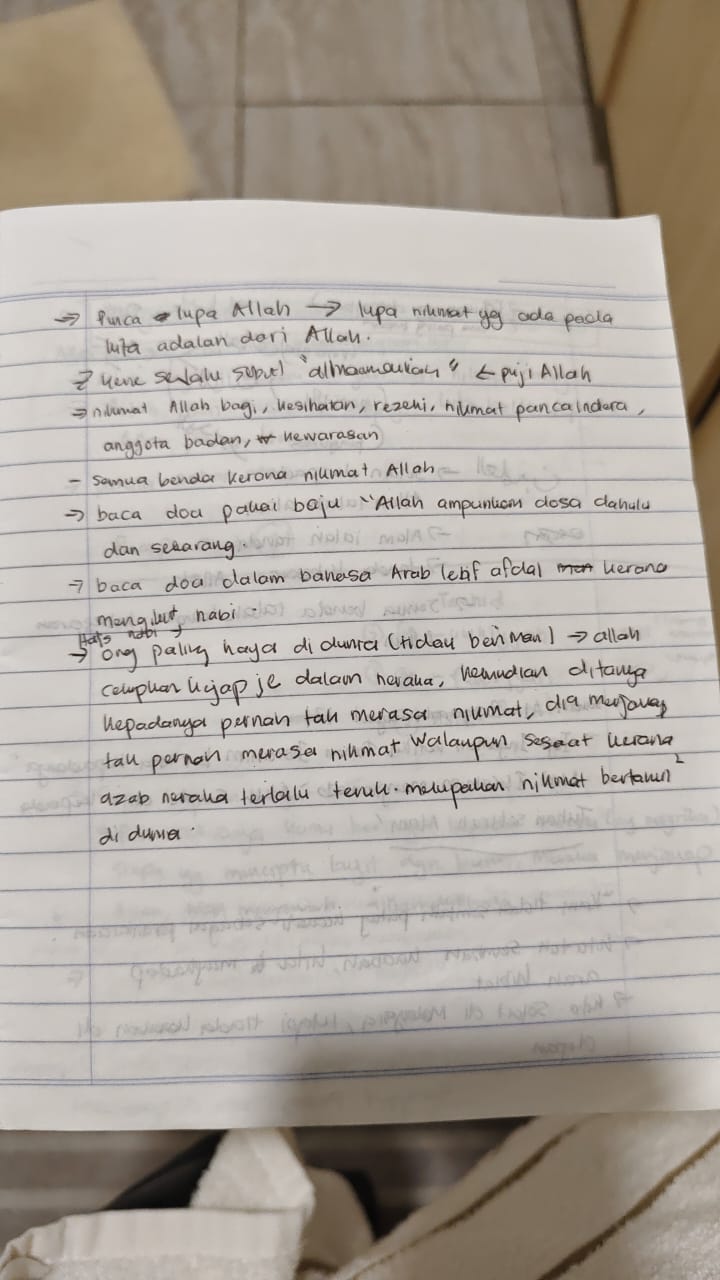 → Punca lupa Allah → lupa nikmat yg ada pada
kita adalah dari Allah.
→ kene selalu sebut "alhamdulillah" ← puji Allah
→ nikmat Allah bagi, kesihatan, rezeki, nikmat pancaindera,
anggota badan, kewarasan
- Semua benda kerana nikmat Allah
→ baca doa pakai baju "Allah ampunkan dosa dahulu
dan sekarang.
→ baca doa dalam bahasa Arab lebih afdal kerana
mengikut nabi.
Hadis nabi →
→ Org paling kaya di dunia (tidak beriman) → allah
celupkan kejap je dalam neraka, kemudian ditanya
kepadanya pernah tak merasa nikmat, dia menjawab
tak pernah merasa nikmat walaupun sesaat kerana
azab neraka terlalu teruk. melupakan nikmat bertahun²
di dunia.